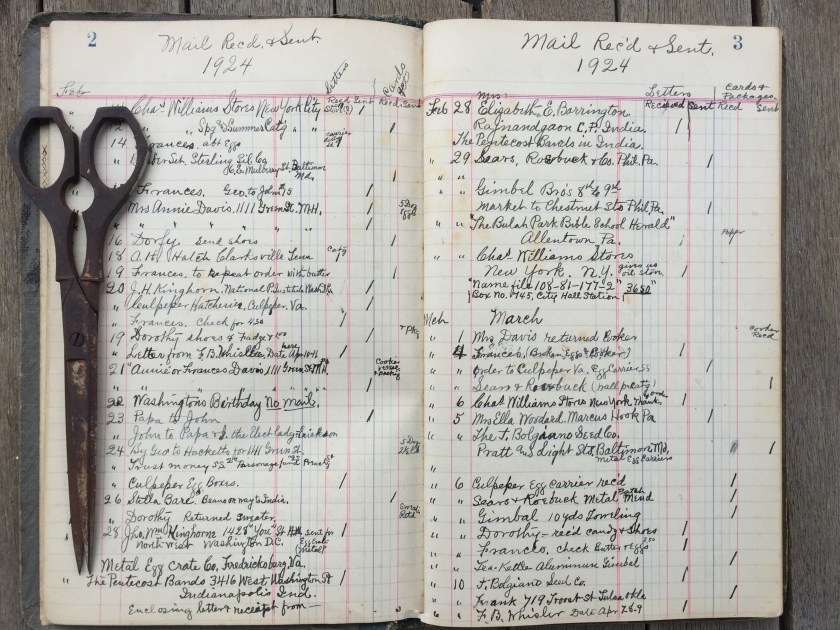 2
Mail Rec'd. & Sent.
1924
Letters
Cards
Rec'd Sent
Rec'd. Sent
Feb
Chas Williams Stores New York City
" " Spg & Summer Catg " "
14 Frances. abt Eggs
Sterling Sil. Co.
Mulberry St. Baltimore
Md.
Frances. Geo. to John
Mrs Annie Davis. 1111 Green St. M.H.
" " " " " "
16 Dorfy. send shoes
18 A.H. Hatch Clarksville Tenn
Catg
19 Frances. to repeat order with butter
20 J.H. Kinghorn. National P. Institute Wash D.C.
" Culpeper Hatcheries, Culpeper. Va.
" Frances. Check for 450
19 Dorothy shoes & Fudge
" Letter from F. B. Whisler, Date, Apr
21 Annie or Frances Davis. 1111 Green St. M.H.
22 Washington's Birthday No mails.
23 Papa to John
" John to Papa & J. the Elect lady
24 By Geo to Hacketts for 1411 Green St.
" Trust money
" Culpeper Egg Boxes.
26 Stella Bare. Barnsoway to India.
" Dorothy Returned Sweater.
28 Jho. Wm Kinghorne 1428 "You" St.
North West Washington D.C.
sent for
Egg Crate
Metal Egg Crate Co, Fredericksburg, Va.
" The Pentecost Bands 3416 West Washington St
Indianapolis Ind.
Enclosing letter & receipt from
3
Mail Rec'd & Sent.
1924
Letters
Cards &
Packages
Received Sent
Recd Sent
Mrs.
Feb 28 Elizabeth. E. Barrington.
Rajnandgaon C. P. India.
The Pentecost Bands in India.
" 29 Sears, Roebuck & Co. Phil. Pa.
" "
" Gimbel Bro's 8th to 9th
Market to Chestnut Sts Phil. Pa.
" "The Bulah Park Bible School Herald"
Allentown Pa.
Paper
" " Chas Williams Stores
New York. N.Y.
gives us
"Name file 108-81-177-2" "3680"
Box No. 745, City Hall Station
Mch. March
" 1 Mrs Davis returned Cooker
Cooker
Recd
" 4 Frances, (Broken Eggs & Cooker)
" " Order to Culpeper Va. Egg Carriers
" " Sears & Roebuck (wall paper catg)
" 6 Chas Williams Stores New York
" 5 Mrs Ella Woodard. Marcus Hook Pa
" " The F. Bolgiano Seed Co.
Pratt and Light Sts. Baltimore, Md.
Metal Egg Carriers
"
" 6 Culpeper Egg Carrier rec'd
" " Sears & Roebuck Metal Mend
" " Gimbel 10 yds Toweling
" " Dorothy = rec'd candy & Shoes
" " Frances, check Butter & Eggs
" " Tea-Kettle Aluminum Gimbel
" 10 F. Bolgiano Seed Co.
" " Frank 719 Troost St Tulsa Okla
" " F. B. Whisler Date Apr